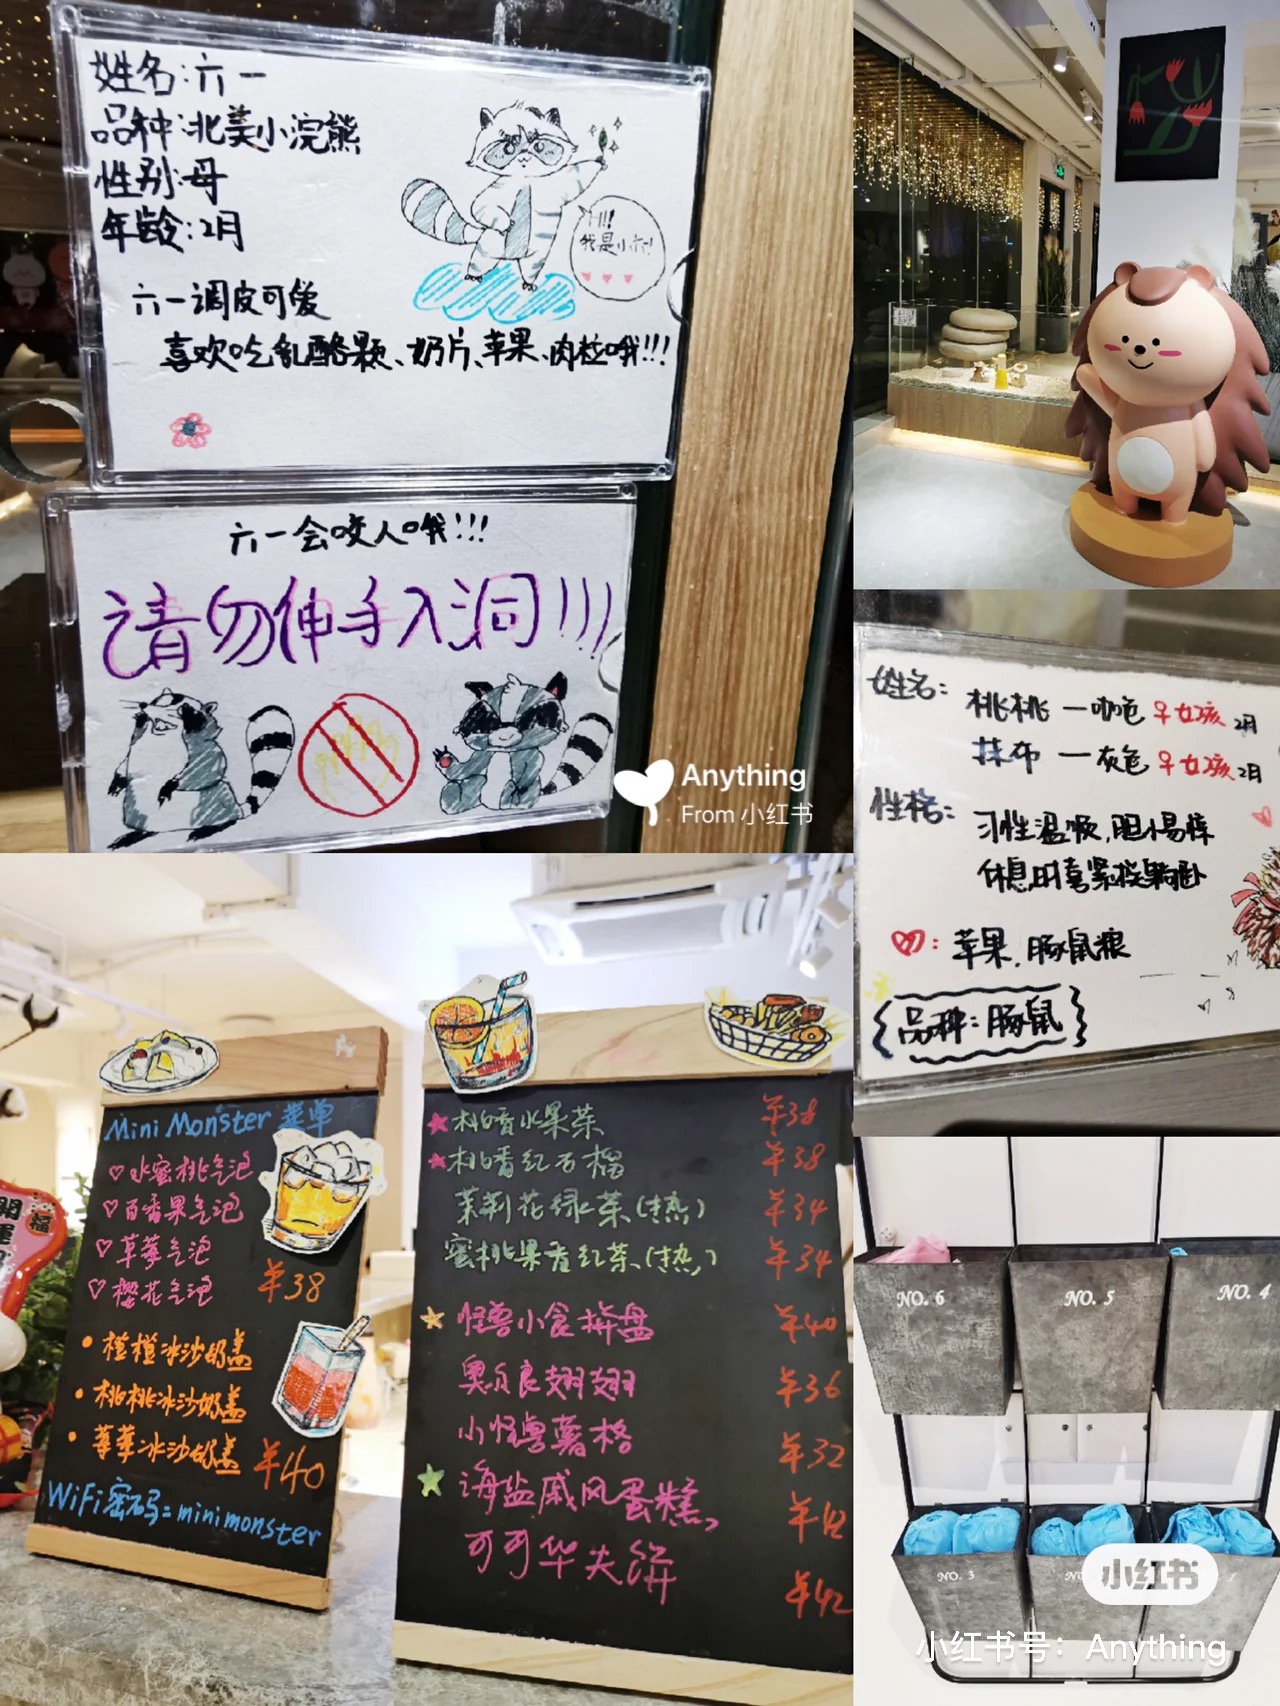 姓名:六一
品种:北美小浣熊
性别:母
年龄:2月
Hi!!
我是小六!
六一调皮可爱
喜欢吃乳酪颗、奶片、苹果、肉粒哦!!!
六一会咬人哦!!!
请勿伸手入洞!!!
Anything
From 小红书
姓名:
桃桃 一咖色 ♀女孩 2月
抹布 一灰色 ♀女孩 2月
性格:
习性温顺,胆小易惊
休息时喜紧挨躺卧
♡: 苹果、豚鼠粮
{品种:豚鼠}
Mini Monster 菜单
♡水蜜桃气泡
♡百香果气泡
♡草莓气泡
♡樱花气泡
¥38
• 橙橙冰沙奶盖
• 桃桃冰沙奶盖
• 莓莓冰沙奶盖 ¥40
WiFi密码=minimonster
★柏香水果茶 ¥38
★柏香红石榴 ¥38
茉莉花绿茶(热) ¥34
蜜桃果香红茶(热) ¥34
☆ 怪兽小食拼盘 ¥40
奥尔良翅翅 ¥36
小怪兽薯格 ¥32
☆ 海盐戚风蛋糕 ¥42
可可华夫饼 ¥42
開運
福
NO. 6
NO. 5
NO. 4
NO. 3
小红书
小红书号：Anything